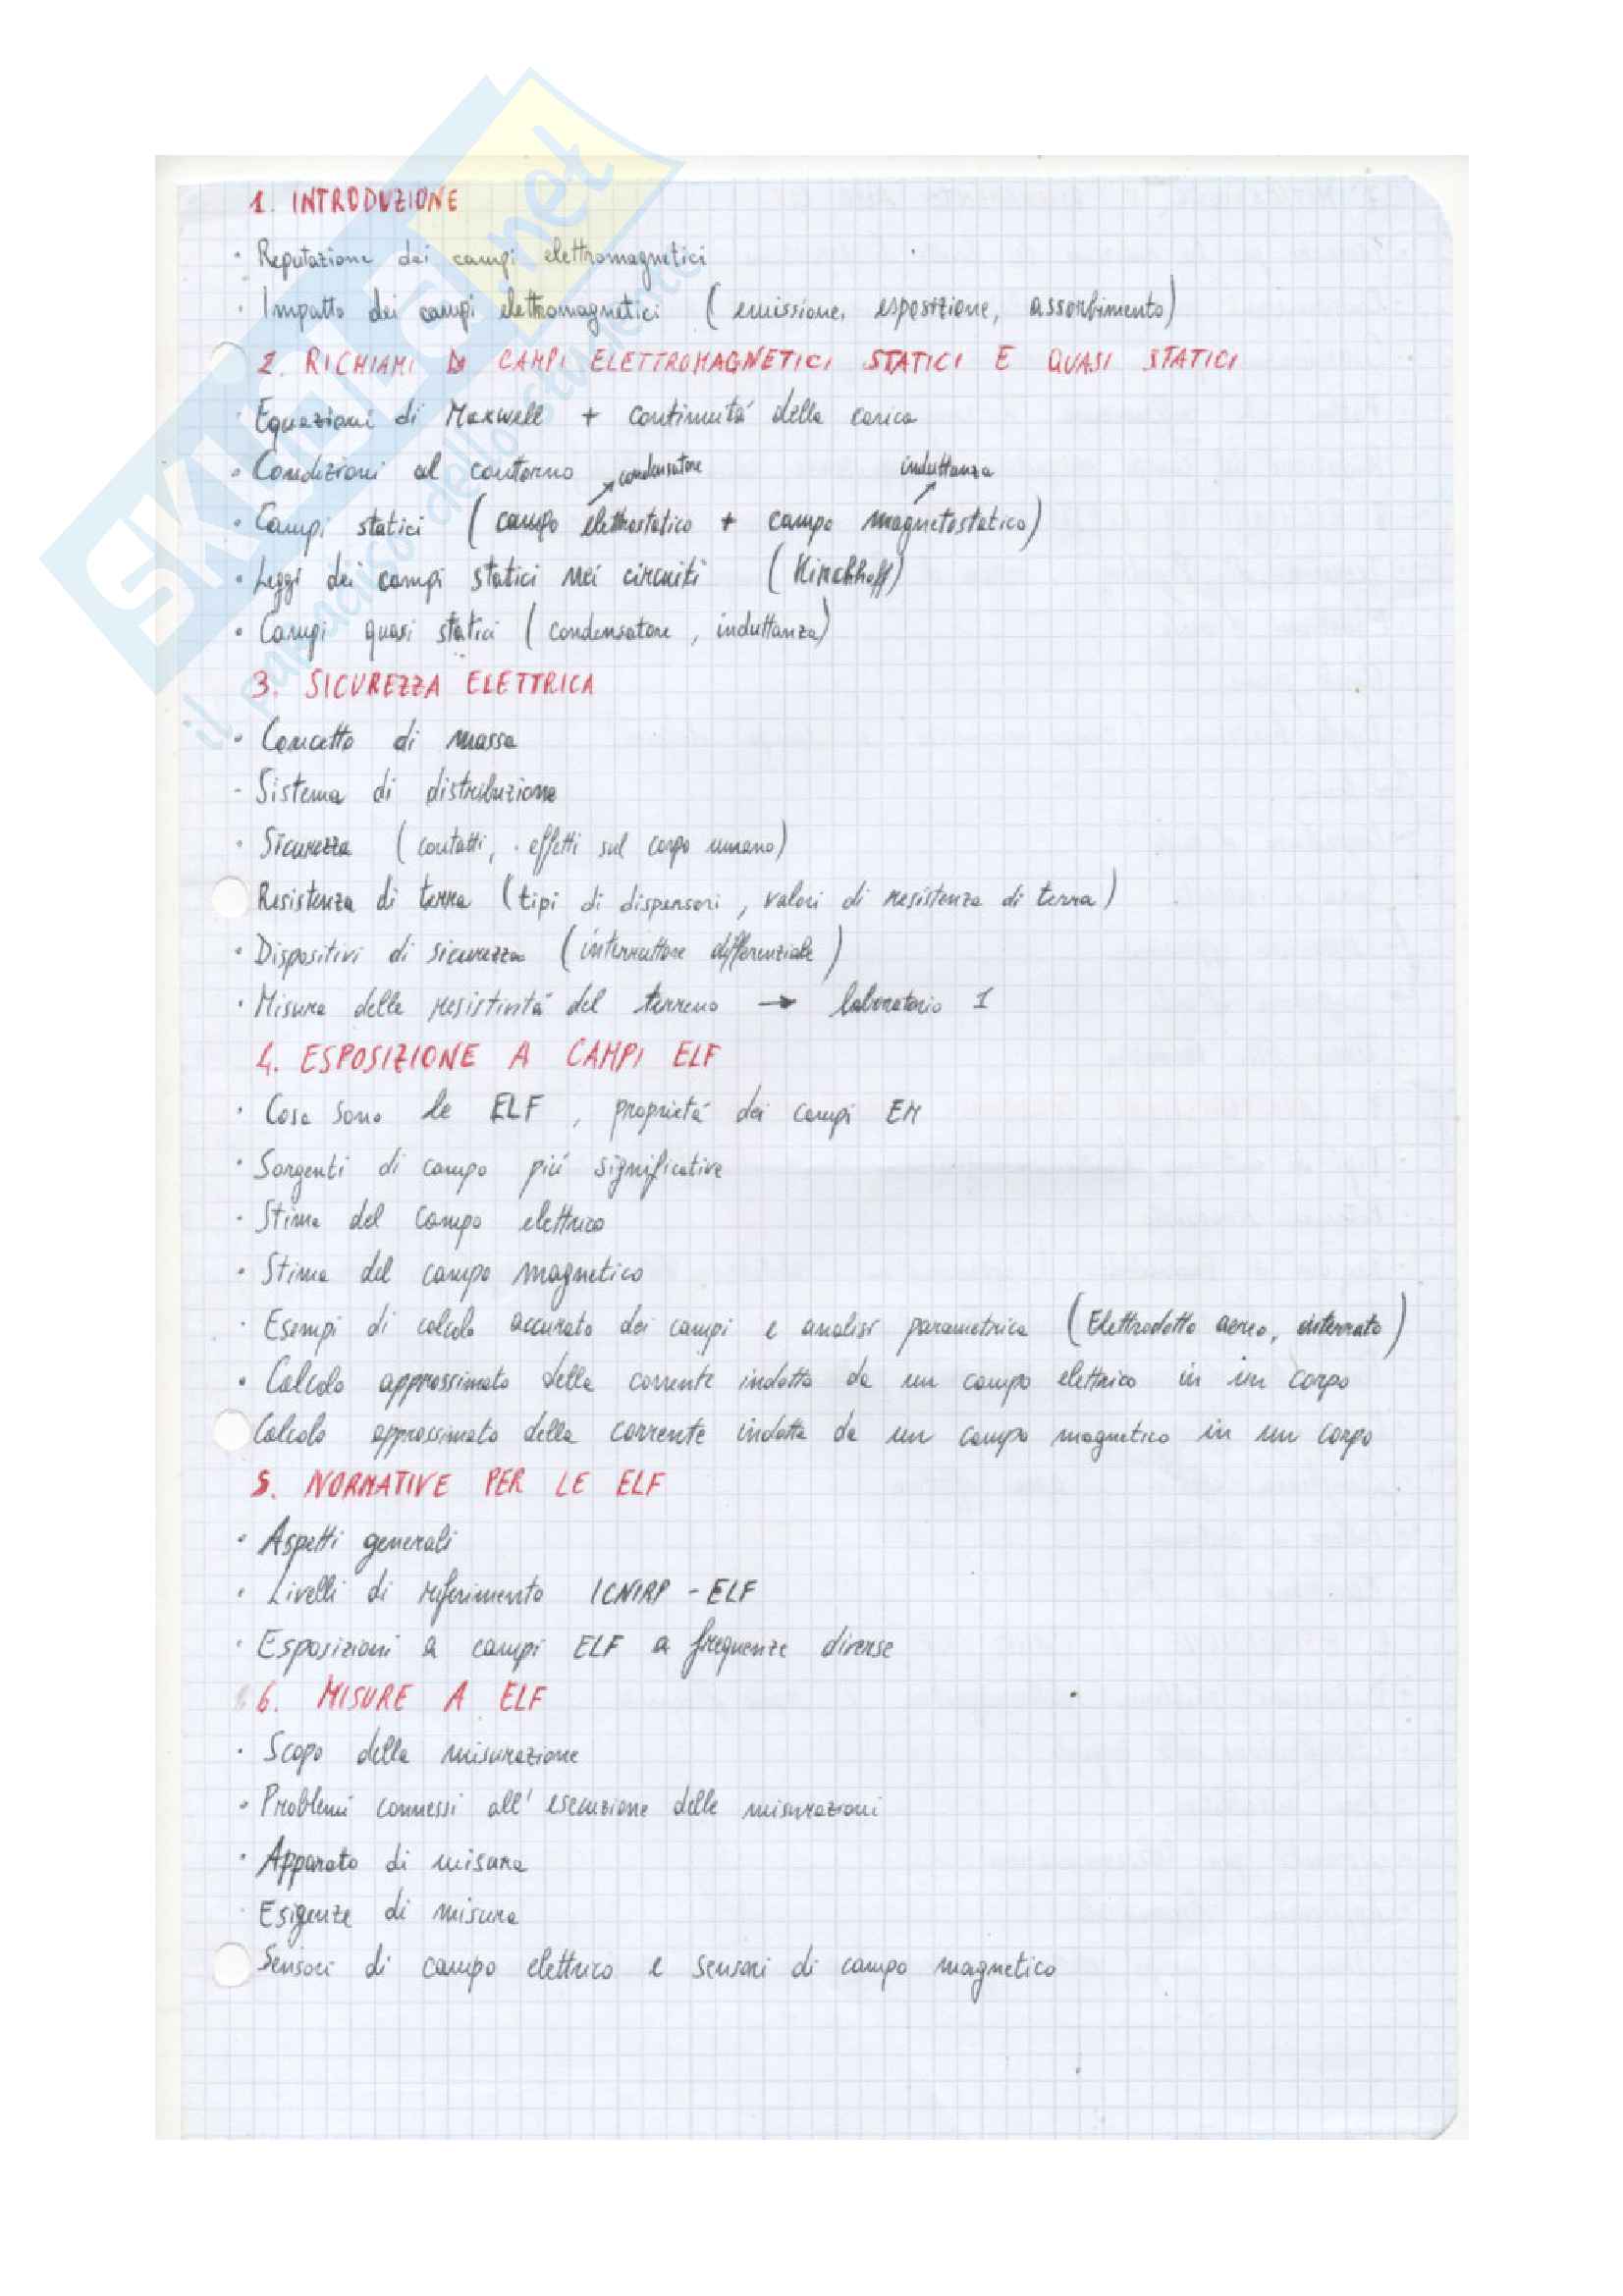 1. INTRODUZIONE
· Reputazione dei campi elettromagnetici
· Impatto dei campi elettromagnetici (emissione, esposizione, assorbimento)
2. RICHIAMI DI CAMPI ELETTROMAGNETICI STATICI E QUASI STATICI
· Equazioni di Maxwell + continuitá della carica
· Condizioni al contorno
condensatore induttanza
· Campi statici (campo elettrostatico + campo magnetostatico)
· Leggi dei campi statici nei circuiti (Kirchhoff)
· Campi quasi statici (condensatore, induttanza)
3. SICUREZZA ELETTRICA
· Concetto di massa
- Sistema di distribuzione
· Sicurezza (contatti, effetti sul corpo umano)
Resistenza di terra (tipi di dispersori, valori di resistenza di terra)
· Dispositivi di sicurezza (interruttore differenziale)
· Misura della resistivitá del terreno → laboratorio 1
4. ESPOSIZIONE A CAMPI ELF
· Cosa sono le ELF, proprietá dei campi EM
· Sorgenti di campo piú significative
· Stima del campo elettrico
· Stima del campo magnetico
· Esempi di calcolo accurato dei campi e analisi parametrica (Elettrodotto aereo, interrato)
· Calcolo approssimato della corrente indotta da un campo elettrico in un corpo
Calcolo approssimato della corrente indotta da un campo magnetico in un corpo
5. NORMATIVE PER LE ELF
· Aspetti generali
· Livelli di riferimento ICNIRP - ELF
· Esposizioni a campi ELF a frequenze diverse
6. MISURE A ELF
· Scopo della misurazione
· Problemi connessi all'esecuzione delle misurazioni
· Apparato di misura
· Esigenze di misura
Sensori di campo elettrico e sensori di campo magnetico
skuola.net
il paradiso dello studente